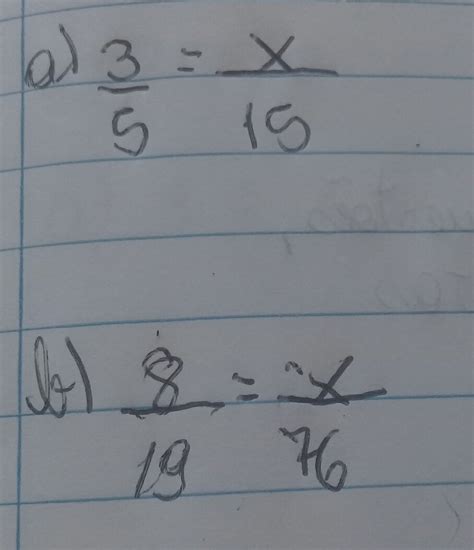 a) 3/5 = x/15
b) 8/19 = x/76